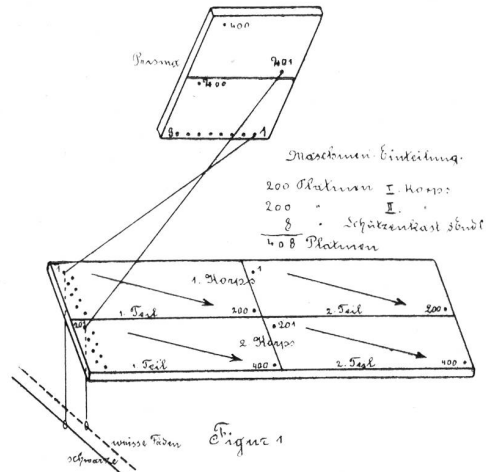 400
Prisma
201
400
8 1
Maschinen-Einteilung.
200 Platinen I. Korps
200 " II. "
8 " Schützenkast.
408 Platinen
1 1. Korps 1
1. Teil 200 2. Teil 200
201 201
2. Korps
1. Teil 400 2. Teil 400
weisse Fäden
schwarze
Figur 1